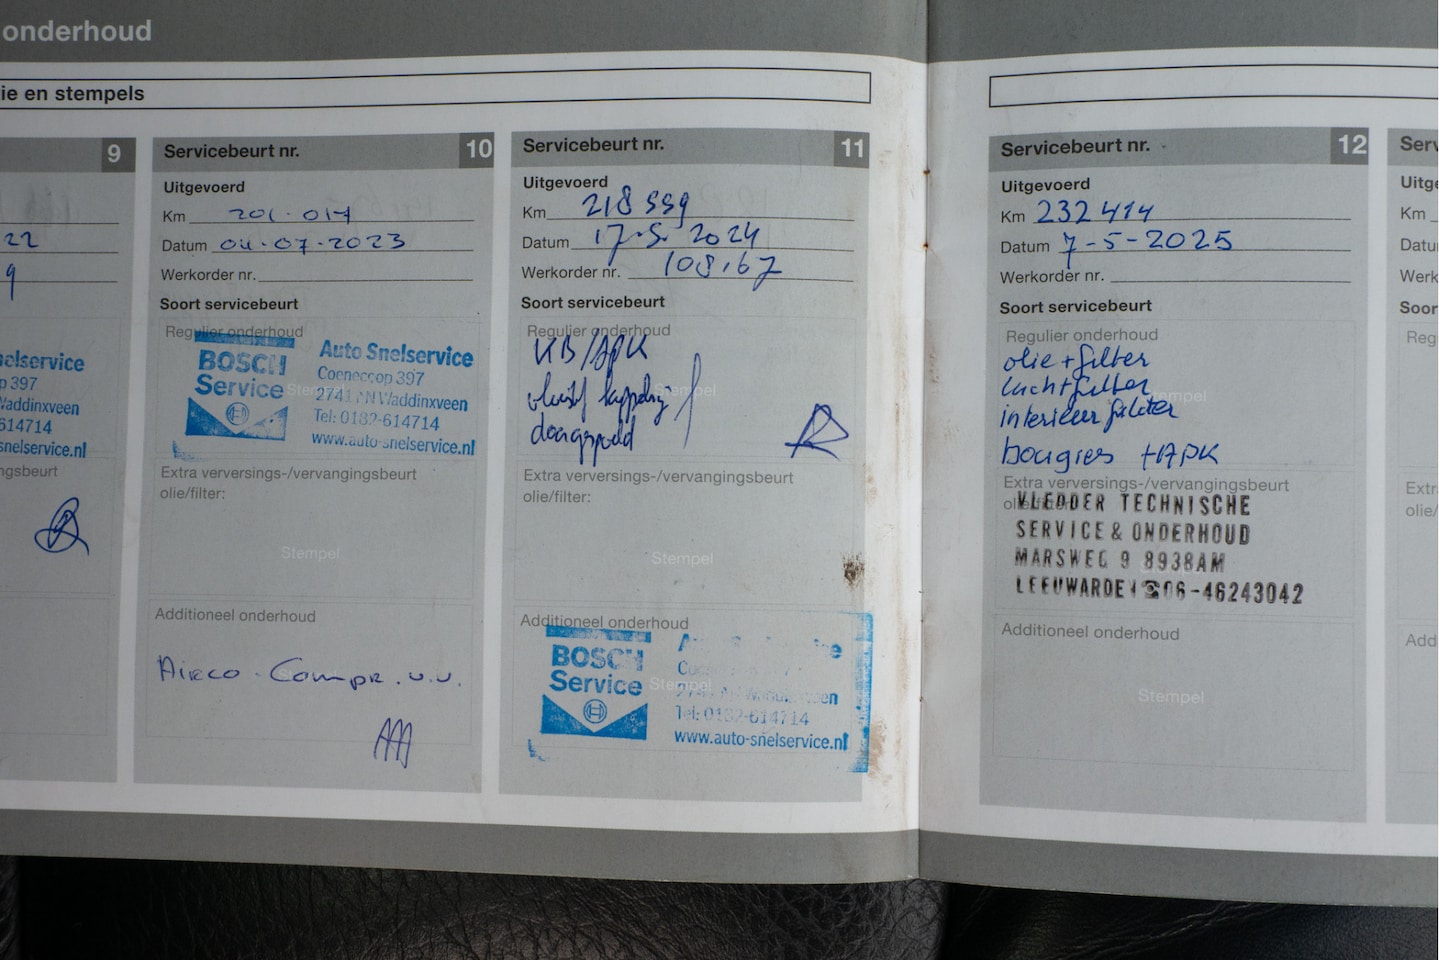 onderhoud
ie en stempels
9
22
9
elservice
p 397
Waddinxveen
614714
snelservice.nl
ngsbeurt
Servicebeurt nr. 10
Uitgevoerd
Km 201.017
Datum 04-07-2023
Werkorder nr.
Soort servicebeurt
Regulier onderhoud
BOSCH
Service
Auto Snelservice
Coenecoop 397
2741 PN Waddinxveen
Tel: 0182-614714
www.auto-snelservice.nl
Stempel
Extra verversings-/vervangingsbeurt
olie/filter:
Stempel
Additioneel onderhoud
Airco. Compr. v.v.
Servicebeurt nr. 11
Uitgevoerd
Km 218 559
Datum 17-5-2024
Werkorder nr. 108167
Soort servicebeurt
Regulier onderhoud
KB/APK
Stempel
vloeist koppeling
doorgespoeld
Extra verversings-/vervangingsbeurt
olie/filter:
Stempel
Additioneel onderhoud
BOSCH
Service
Stempel
Tel: 0182-614714
www.auto-snelservice.nl
Servicebeurt nr. 12
Uitgevoerd
Km 232 414
Datum 7-5-2025
Werkorder nr.
Soort servicebeurt
Regulier onderhoud
olie+filter
luchtfilter
interieurfilter
bougies +APK
Extra verversings-/vervangingsbeurt
olie/filter:
VLEDDER TECHNISCHE
SERVICE & ONDERHOUD
MARSWEG 9 8938AM
LEEUWARDEN ☎06-46243042
Additioneel onderhoud
Stempel
Serv
Uitge
Km
Datu
Werk
Soor
Reg
Extr
olie/
Add